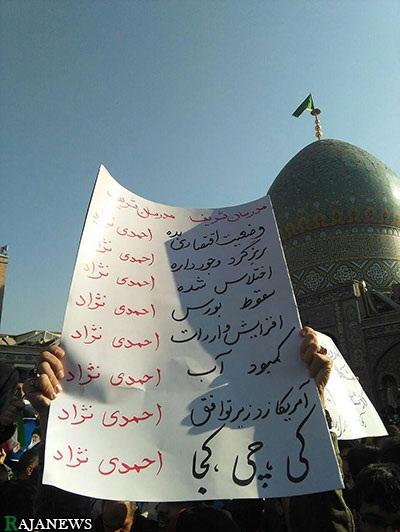 مدرسان شریف مدرسان شریف
وضعیت اقتصادی بده احمدی نژاد
ریزگرد وجود داره احمدی نژاد
اختلاس شده احمدی نژاد
سقوط بورس احمدی نژاد
افزایش واردات احمدی نژاد
کمبود آب احمدی نژاد
آمریکا زد زیر توافق احمدی نژاد
کی ،چی ،کجا احمدی نژاد
RAJANEWS